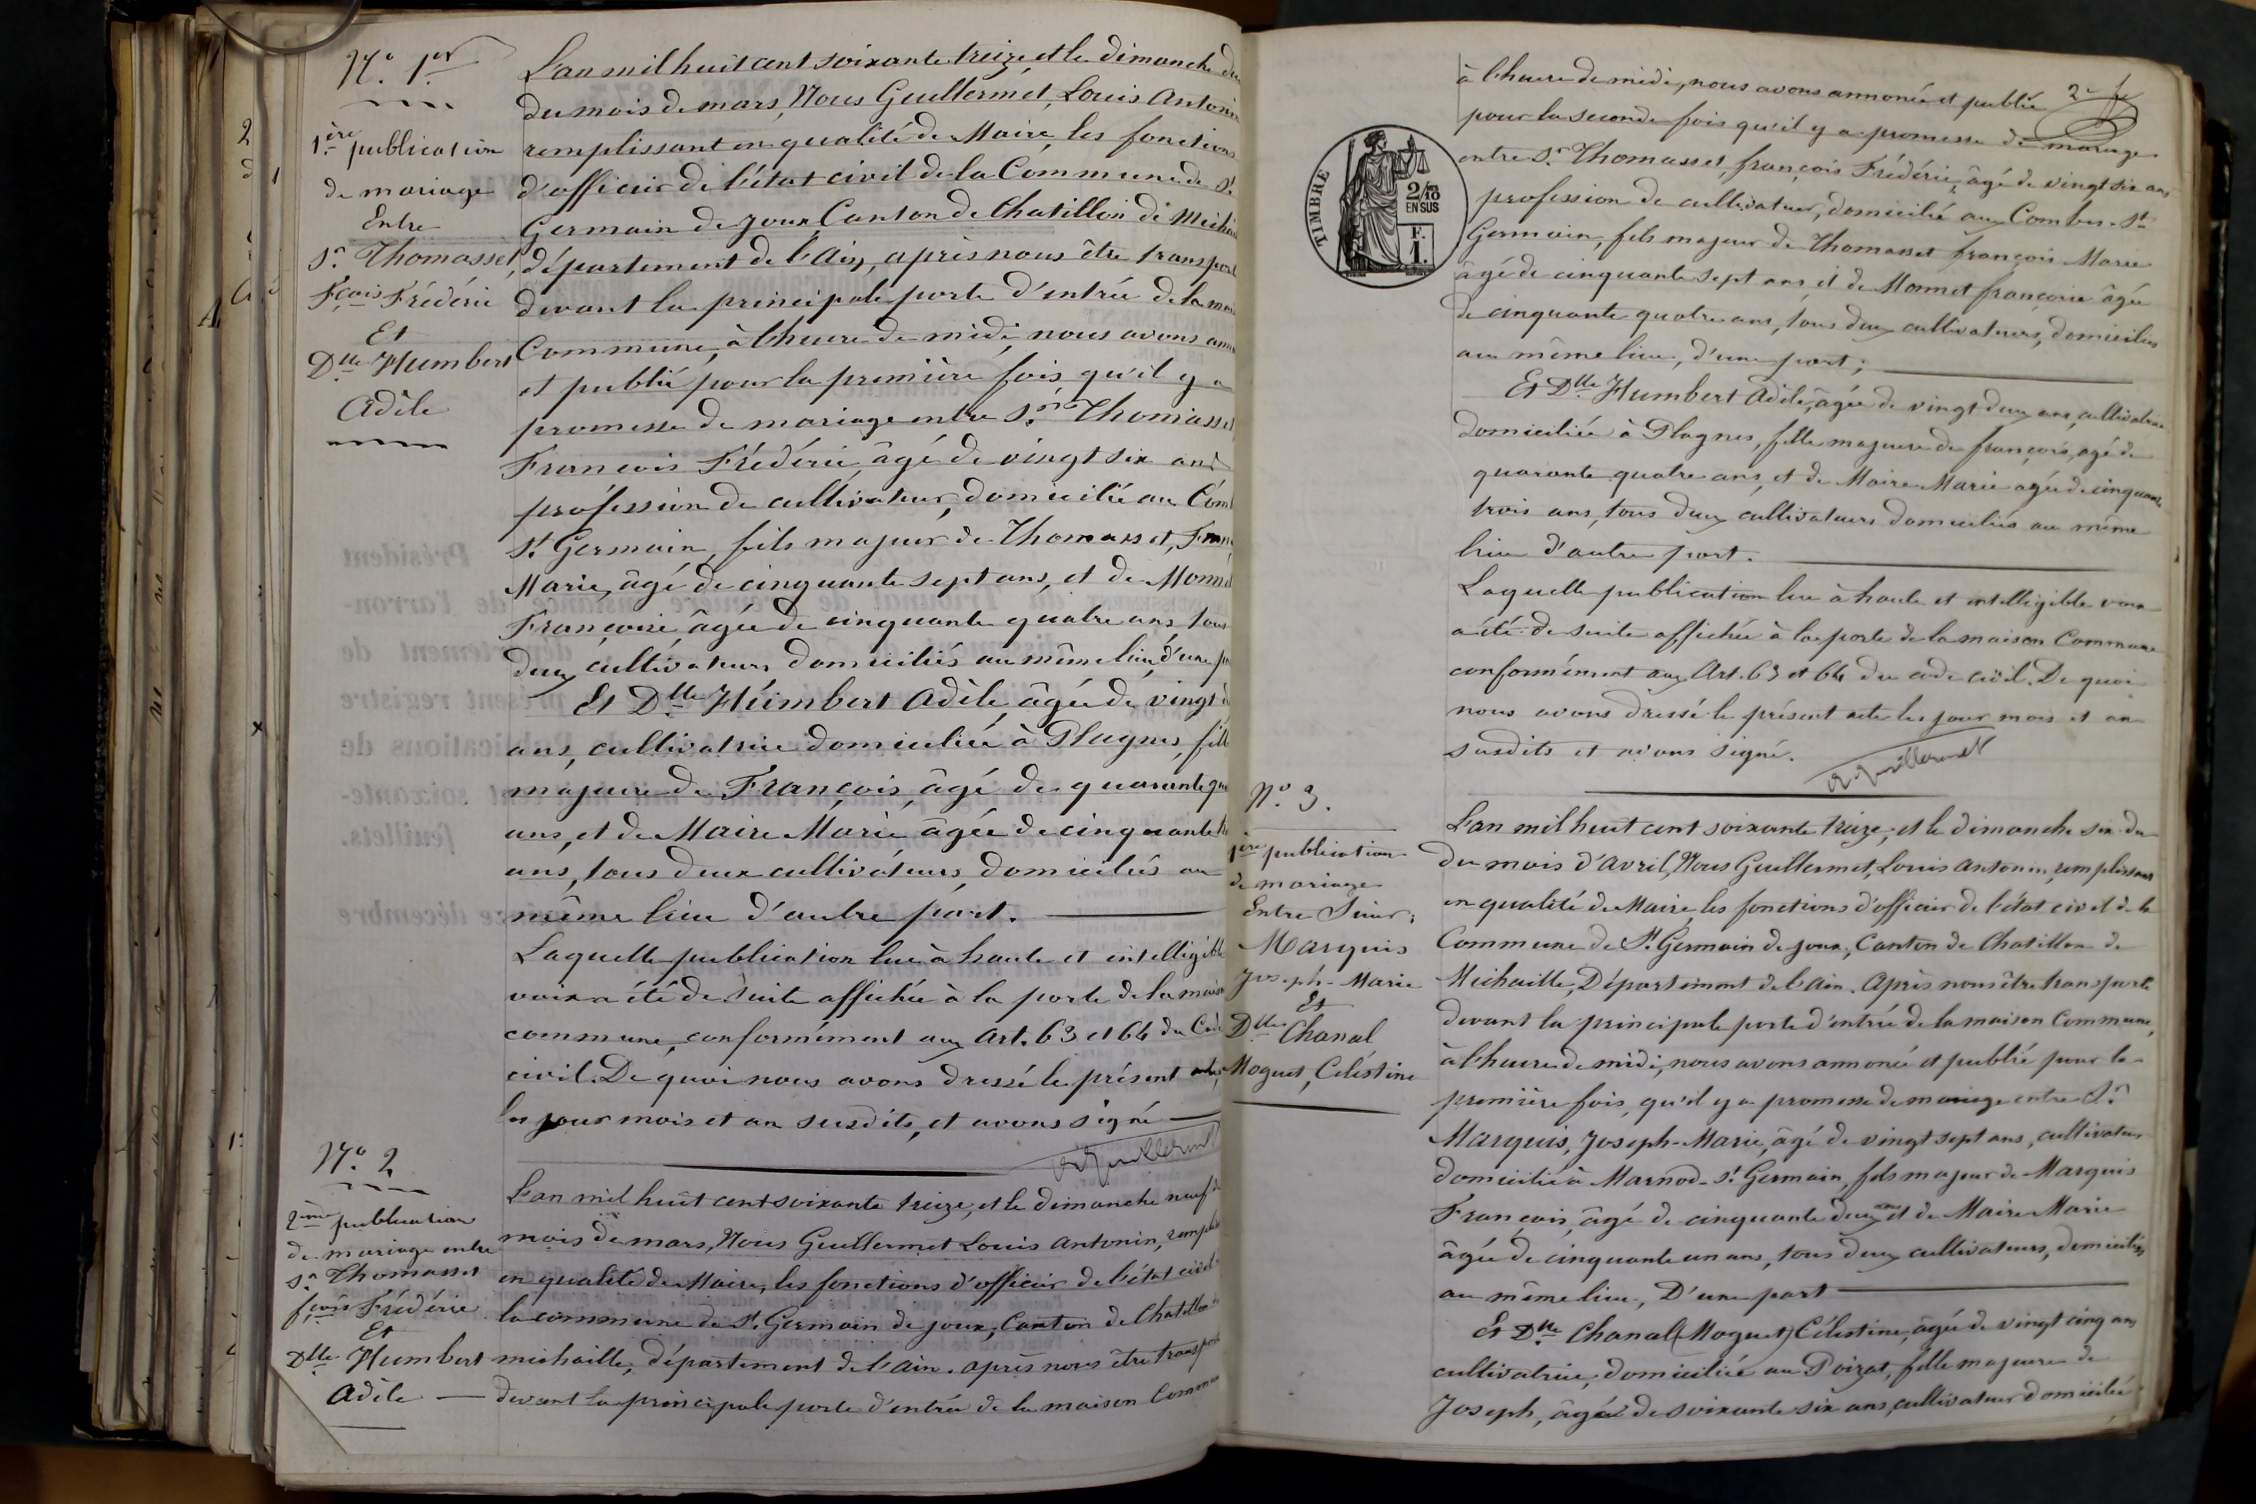 N.° 1.er
1.ère publication
de mariage
Entre
S.r Thomasset,
F.çois Frédéric
Et
D.lle Humbert
Adèle
L'an mil huit cent soixante treize et le dimanche
du mois de mars, Nous Guillermet, Louis Antonin
remplissant en qualité de Maire, les fonctions
d'officier de l'état civil de la Commune de St
Germain de Joux, Canton de Chatillon de
département de l'Ain, après nous être
devant la principale porte d'entrée de la
Commune, à l'heure de midi, nous avons
et publié pour la première fois, qu'il y a
promesse de mariage entre S.r Thomasset
François Frédéric, âgé de vingt six ans
profession de cultivateur, domicilié au
St Germain, fils majeur de Thomasset,
Marie, âgé de cinquante sept ans, et de
Françoise, âgée de cinquante quatre ans tous
deux cultivateurs domiciliés au même lieu, d'une
Et D.lle Humbert Adèle, âgée de vingt
ans, cultivatrice domiciliée à Plagnes,
majeure de François, âgé de quarante
ans, et de Maire Marie âgée de cinquante
ans, tous deux cultivateurs, domiciliés au
même lieu d'autre part.
Laquelle publication lue à haute et intelligible
voix a été de suite affichée à la porte de la maison
commune, conformément aux Art. 63 et 64 du Code
civil. De quoi nous avons dressé le présent acte,
les jour mois et an susdits, et avons signé
Guillermet
N.° 2
2.ème publication
de mariage entre
S.r Thomasset
f.çois Frédéric
Et
D.lle Humbert
Adèle
L'an mil huit cent soixante treize, et le dimanche neuf
mois de mars, Nous Guillermet Louis Antonin,
en qualité de Maire, les fonctions d'officier de l'état civil
la commune de St. Germain de joux, Canton de Chatillon
michaille, département de l'Ain. après nous être
devant la principale porte d'entrée de la maison
2e f.
à l'heure de midi, nous avons annoncé et publié
pour la seconde fois qu'il y a promesse de mariage
entre S.r Thomasset, françois Frédéric, âgé de vingt six ans
profession de cultivateur, domicilié aux Combes-St
Germain, fils majeur de Thomasset françois Marie
âgé de cinquante sept ans, et de Monnet françoise âgée
de cinquante quatre ans, tous deux cultivateurs, domiciliés
au même lieu, d'une part;
Et D.lle Humbert Adèle, âgée de vingt deux ans, cultivatrice
domiciliée à Plagnes, fille majeure de françois, agé de
quarante quatre ans, et de Maire Marie agée de cinquante
trois ans, tous deux cultivateurs domiciliés au même
lieu d'autre part.
Laquelle publication lue à haute et intelligible voix
a été de suite affichée à la porte de la maison Commune
conformément aux Art. 63 et 64 du code civil. De quoi
nous avons dressé le présent acte les jour mois et an
susdits et avons signé.
Guillermet
TIMBRE
2/10
EN SUS
F.
1.
N.° 3.
1ère publication
de mariage
Entre Sieur;
Marquis
Joseph-Marie
Et
D.lle Chanal
Moguet, Célestine
L'an mil huit cent soixante treize, et le dimanche six du
du mois d'Avril, Nous Guillermet, Louis Antonin, remplissant
en qualité de Maire, les fonctions d'officier de l'état civil de la
Commune de St. Germain de joux, Canton de Chatillon de
Michaille, Département de l'Ain. Après nous être transporté
devant la principale porte d'entrée de la maison Commune,
à l'heure de midi, nous avons annoncé et publié pour la
première fois, qu'il y a promesse de mariage entre S.r
Marquis, Joseph-Marie, âgé de vingt sept ans, cultivateur
domicilié à Marnod-St. Germain, fils majeur de Marquis
François, âgé de cinquante deux ans et de Maire Marie
âgée de cinquante un ans, tous deux cultivateurs, domiciliés
au même lieu, D'une part
Et D.lle Chanal (Moguet) Célestine, âgée de vingt cinq ans
cultivatrice, domiciliée au Poizat, fille majeure de
Joseph, âgé de soixante six ans, cultivateur domicilié